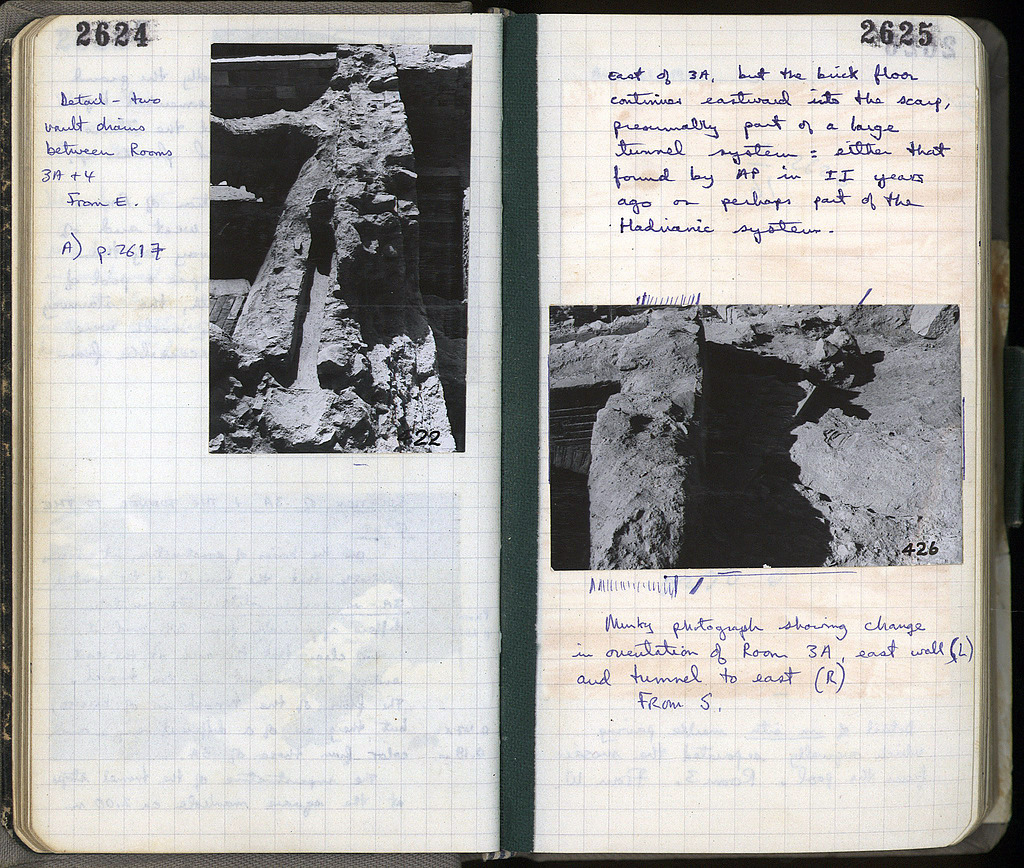 2624
Detail - two
vault drains
between Rooms
3A + 4
From E.
A) p. 2617
22
2625
east of 3A, but the brick floor
continues eastward into the scarp,
presumably part of a large
tunnel system = either that
found by AP in II years
ago or perhaps part of the
Hadrianic system.
426
Murky photograph showing change
in orientation of Room 3A, east wall (L)
and tunnel to east (R)
From S.